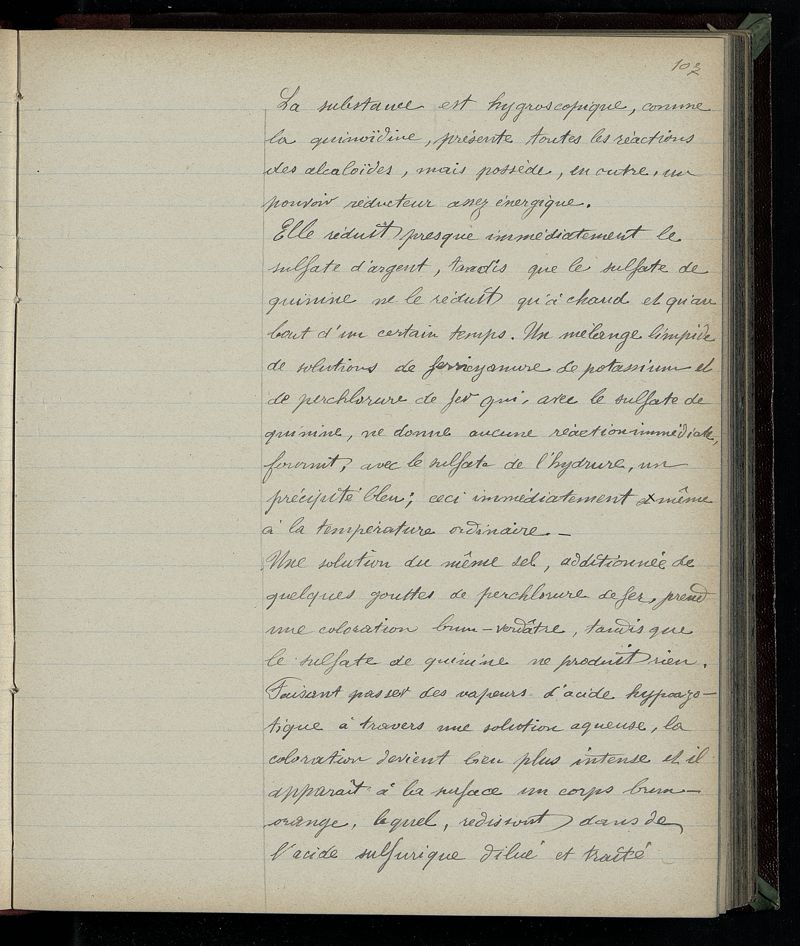 102
La substance est hygroscopique, comme
la quinoïdine, présente toutes les réactions
des alcaloïdes, mais possède, en outre, un
pouvoir réducteur assez énergique.
Elle réduit presque immédiatement le
sulfate d'argent, tandis que le sulfate de
quinine ne le réduit qu'à chaud et qu'au
bout d'un certain temps. Un mélange limpide
de solutions de ferricyanure de potassium et
de perchlorure de fer qui, avec le sulfate de
quinine, ne donne aucune réaction immédiate,
fournit, avec le sulfate de l'hydrure, un
précipité bleu; ceci immédiatement x même
à la température ordinaire. —
Une solution du même sel, additionnée de
quelques gouttes de perchlorure de fer, prend
une coloration brun-verdâtre, tandis que
le sulfate de quinine ne produit rien.
Faisant passer des vapeurs d'acide hypoazo-
tique à travers une solution aqueuse, la
coloration devient bien plus intense et il
apparaît à la surface un corps brun-
orange, lequel, redissout dans de
l'acide sulfurique dilué et traité